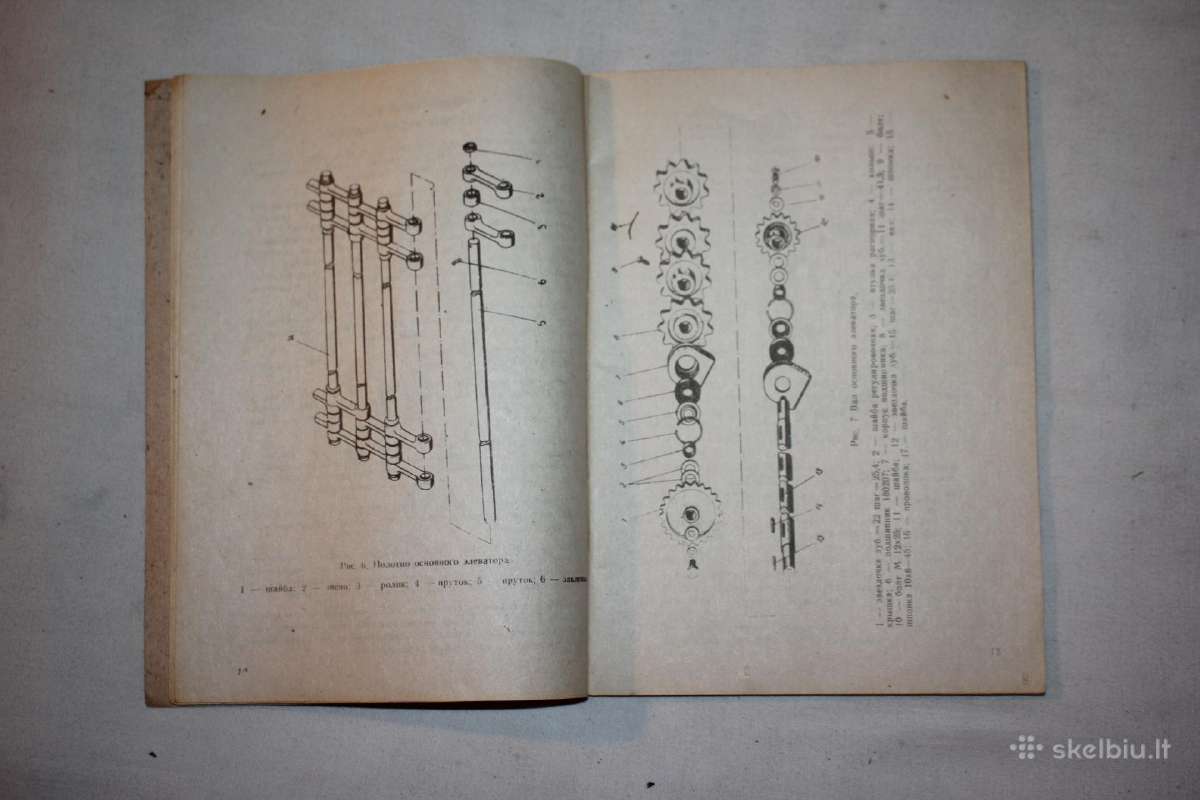 Рис 6. Полотно основного элеватора
1 — шайба; 2 — звено; 3 — ролик; 4 — пруток; 5 — пруток; 6 —
2
5
6
5
Рис. 7 Вал основного элеватора.
1 — звездочка зуб. — 22 шаг — 25,4; 2 — шайба регулировочная; 3 — втулка распорная; 4 — кольцо; 5 —
крышка; 6 — подшипник 180207; 7 — корпус подшипника; 8 — звездочка зуб. — 11 шаг — 41,3; 9 — болт;
10 — болт М 12х25; 11 — шайба; 12 — звездочка зуб. — 16 шаг — 25,4; 13 — вал; 14 — шпонка; 15
шпонка 10х8—45; 16 — проволока; 17 — шайба.
13
skelbiu.lt